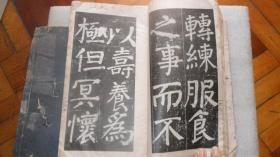 轉練服食
之事而不
以壽養為
極但冥懷